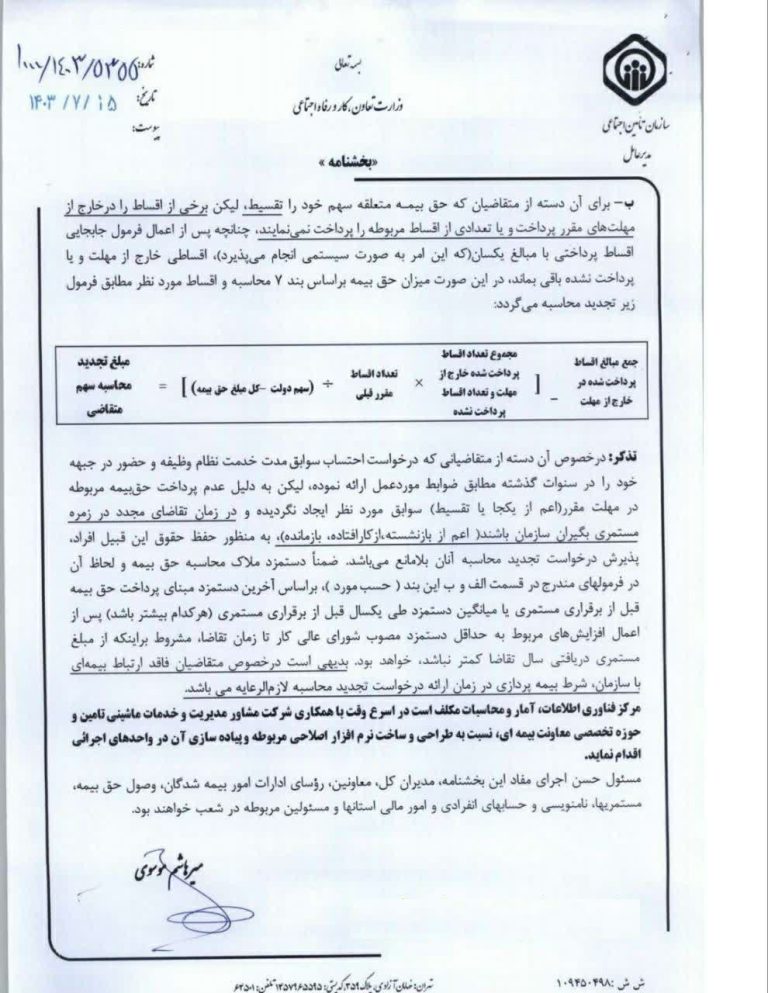 بسمه تعالی
وزارت تعاون، کار و رفاه اجتماعی
سازمان تأمین اجتماعی
مدیرعامل
شماره: ۱۰۰۰/۱۴۰۳/۵۳۵۵
تاریخ: ۱۴۰۳/۷/۱۵
پیوست:
«بخشنامه»
ب- برای آن دسته از متقاضیان که حق بیمه متعلقه سهم خود را تقسیط، لیکن برخی از اقساط را درخارج از
مهلت‌های مقرر پرداخت و یا تعدادی از اقساط مربوطه را پرداخت نمی‌نمایند، چنانچه پس از اعمال فرمول جابجایی
اقساط پرداختی با مبالغ یکسان(که این امر به صورت سیستمی انجام می‌پذیرد)، اقساطی خارج از مهلت و یا
پرداخت نشده باقی بماند، در این صورت میزان حق بیمه براساس بند ۷ محاسبه و اقساط مورد نظر مطابق فرمول
زیر تجدید محاسبه می‌گردد:
جمع مبالغ اقساط
پرداخت شده در
خارج از مهلت
–
[
مجموع تعداد اقساط
پرداخت شده خارج از
مهلت و تعداد اقساط
پرداخت نشده
×
تعداد اقساط
مقرر قبلی
÷
(سهم دولت –کل مبلغ حق بیمه)
]
=
مبلغ تجدید
محاسبه سهم
متقاضی
تذکر: درخصوص آن دسته از متقاضیانی که درخواست احتساب سوابق مدت خدمت نظام وظیفه و حضور در جبهه
خود را در سنوات گذشته مطابق ضوابط موردعمل ارائه نموده، لیکن به دلیل عدم پرداخت حق‌بیمه مربوطه
در مهلت مقرر(اعم از یکجا یا تقسیط) سوابق مورد نظر ایجاد نگردیده و در زمان تقاضای مجدد در زمره
مستمری بگیران سازمان باشند( اعم از بازنشسته،ازکارافتاده، بازمانده)، به منظور حفظ حقوق این قبیل افراد،
پذیرش درخواست تجدید محاسبه آنان بلامانع می‌باشد. ضمناً دستمزد ملاک محاسبه حق بیمه و لحاظ آن
در فرمولهای مندرج در قسمت الف و ب این بند ( حسب مورد )، براساس آخرین دستمزد مبنای پرداخت حق بیمه
قبل از برقراری مستمری یا میانگین دستمزد طی یکسال قبل از برقراری مستمری (هرکدام بیشتر باشد) پس از
اعمال افزایش‌های مربوط به حداقل دستمزد مصوب شورای عالی کار تا زمان تقاضا، مشروط براینکه از مبلغ
مستمری دریافتی سال تقاضا کمتر نباشد، خواهد بود. بدیهی است درخصوص متقاضیان فاقد ارتباط بیمه‌ای
با سازمان، شرط بیمه پردازی در زمان ارائه درخواست تجدید محاسبه لازم‌الرعایه می باشد.
مرکز فناوری اطلاعات، آمار و محاسبات مکلف است در اسرع وقت با همکاری شرکت مشاور مدیریت و خدمات ماشینی تامین و
حوزه تخصصی معاونت بیمه ای، نسبت به طراحی و ساخت نرم افزار اصلاحی مربوطه و پیاده سازی آن در واحدهای اجرائی
اقدام نماید.
مسئول حسن اجرای مفاد این بخشنامه، مدیران کل، معاونین، رؤسای ادارات امور بیمه شدگان، وصول حق بیمه،
مستمریها، نامنویسی و حسابهای انفرادی و امور مالی استانها و مسئولین مربوطه در شعب خواهند بود.
میرهاشم موسوی
تهران: خیابان آزادی، پلاک ۳۵۹، کدپستی: ۱۴۵۷۹۶۵۵۹۵ تلفن: ۶۴۵۰۱
ش ش :۱۰۹۴۵۰۴۹۸